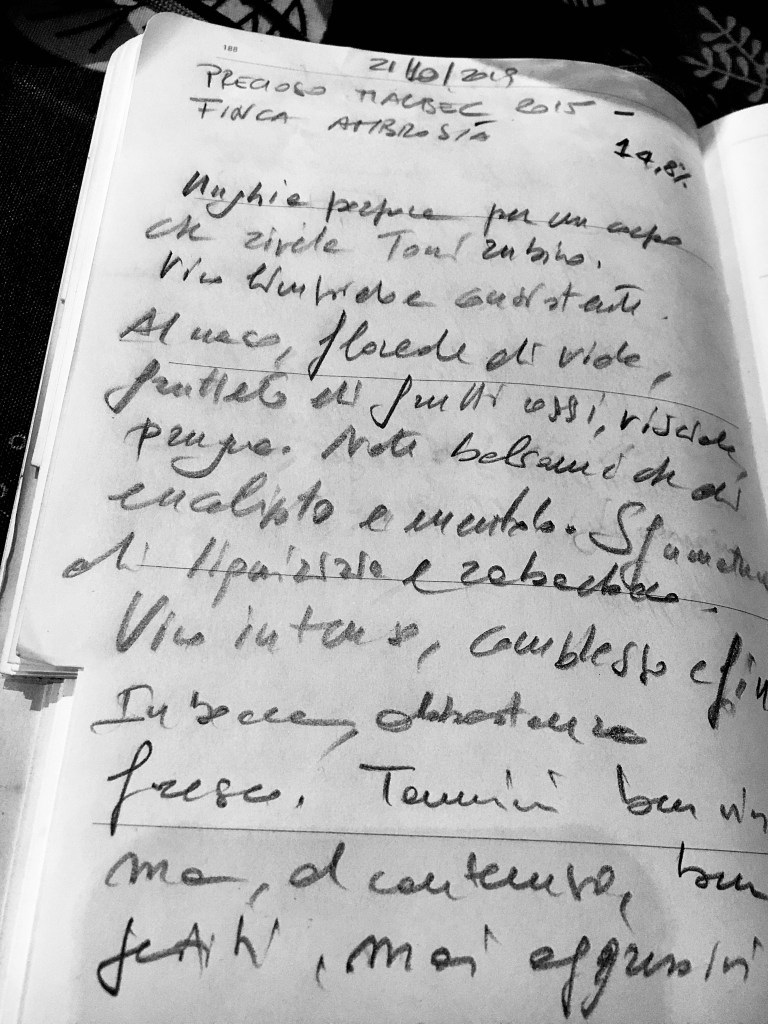 188
21/10/2019
PRECIOSO MALBEC 2015 -
FINCA AMBROSÍA
14,8%
Unghia porpora per un corpo
che rivela Toni rubino.
Vino limpido e consistente.
Al naso, floreale di viola,
frutteto di frutti rossi, visciole,
prugna. Note balsamiche di
eucalipto e mentolo. Sfumature
di liquirizia e
Vino intenso, complesso e fin
In bocca, abbastanza
fresco. Tannini ben viv
ma, al contempo, ben
gestiti, mai aggressivi